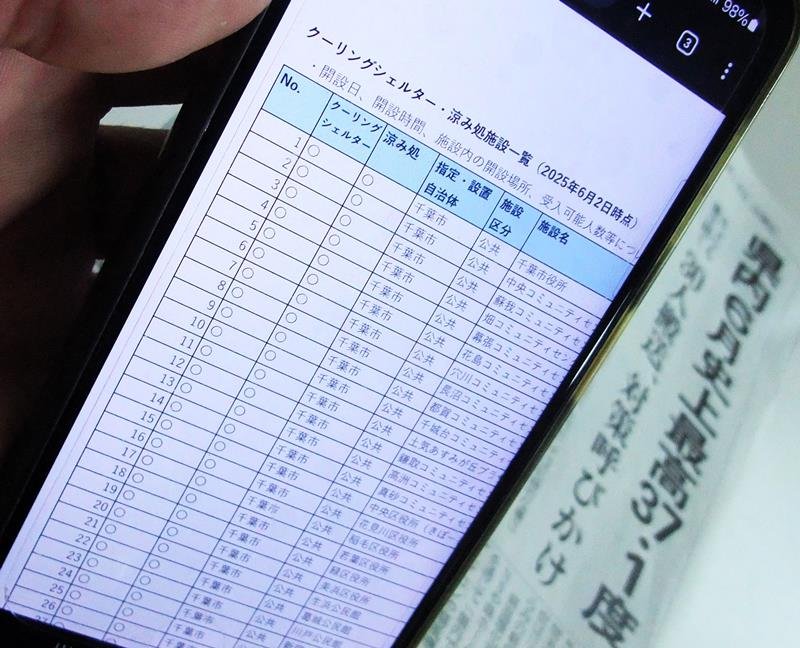 98%
3
クーリングシェルター・涼み処施設一覧（2025年6月2日時点）
・開設日、開設時間、施設内の開設場所、受入可能人数等につ
No. クーリングシェルター 涼み処 指定・設置自治体 施設区分 施設名
1 ○ ○ 千葉市 公共 千葉市役所
2 ○ ○ 千葉市 公共 中央コミュニティセ
3 ○ ○ 千葉市 公共 蘇我コミュニティセ
4 ○ ○ 千葉市 公共 畑コミュニティセン
5 ○ ○ 千葉市 公共 幕張コミュニティセ
6 ○ ○ 千葉市 公共 花島コミュニティセ
7 ○ ○ 千葉市 公共 穴川コミュニティセ
8 ○ ○ 千葉市 公共 長沼コミュニティセ
9 ○ ○ 千葉市 公共 都賀コミュニティセ
10 ○ ○ 千葉市 公共 千城台コミュニティ
11 ○ ○ 千葉市 公共 土気あすみが丘プラ
12 ○ ○ 千葉市 公共 鎌取コミュニティセ
13 ○ ○ 千葉市 公共 高洲コミュニティセ
14 ○ ○ 千葉市 公共 真砂コミュニティセ
15 ○ ○ 千葉市 公共 中央区役所（きぼー
16 ○ ○ 千葉市 公共 花見川区役所
17 ○ ○ 千葉市 公共 稲毛区役所
18 ○ ○ 千葉市 公共 若葉区役所
19 ○ ○ 千葉市 公共 緑区役所
20 ○ ○ 千葉市 公共 美浜区役所
21 ○ ○ 千葉市 公共 生浜公民館
22 ○ ○ 千葉市 公共 葛城公民館
23 ○ ○ 千葉市 公共 川戸公民館
24 ○ ○ 千葉市
25 ○ ○ 千葉市
26 ○
最高37・1度
対策呼びかけ